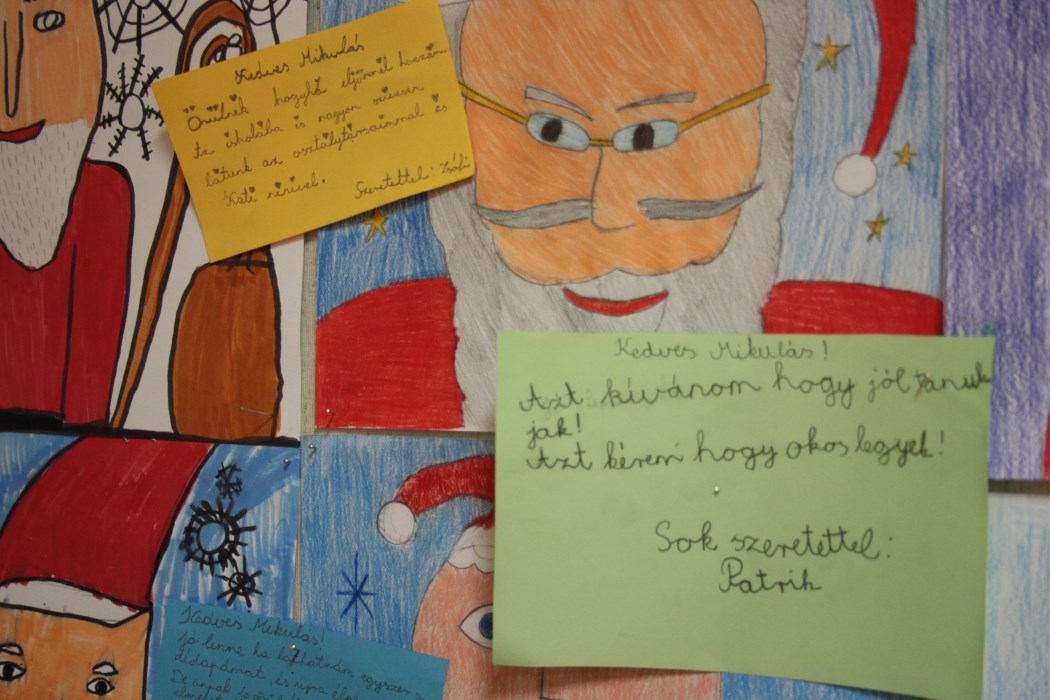 Kedves Mikulás
Örülnék hogyha eljönnél hozzám.
Az iskolába is nagyon szívesen
látunk az osztálytársaimmal és
Kati nénivel.
Szeretettel: Zsófi
Kedves Mikulás!
Azt kívánom hogy jól tanul
jak!
Azt kérem hogy okos legyek!
Sok szeretettel:
Patrik
Kedves Mikulás!
Jó lenne ha láthatnám egyszer a
dédapámat, és újra
De anyák